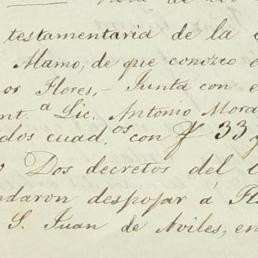 testamentaria de la
Alamo, de que conozco
or Flores,- Junta con e
nt.ª Lic. Antonio Mora
dos cuad.os con f 33 y
Dos decretos del
ndaron despojar á Fl
S. Juan de Aviles, en